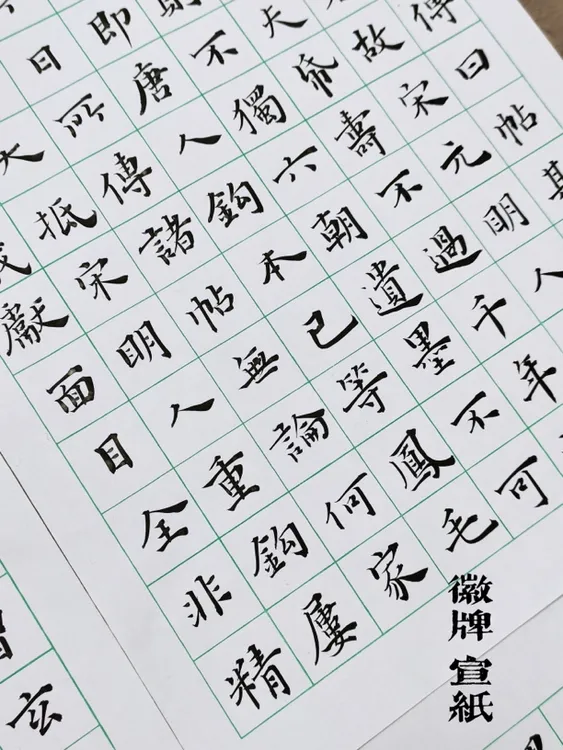 傳曰帖其
故宋元明人
夫帋壽不過千年
不獨六朝遺墨不可
即唐人鈎本已等鳳毛
日所傳諸帖無論何家
大抵宋明人重鈎屢
獻面目全非精
玄
徽牌 宣紙